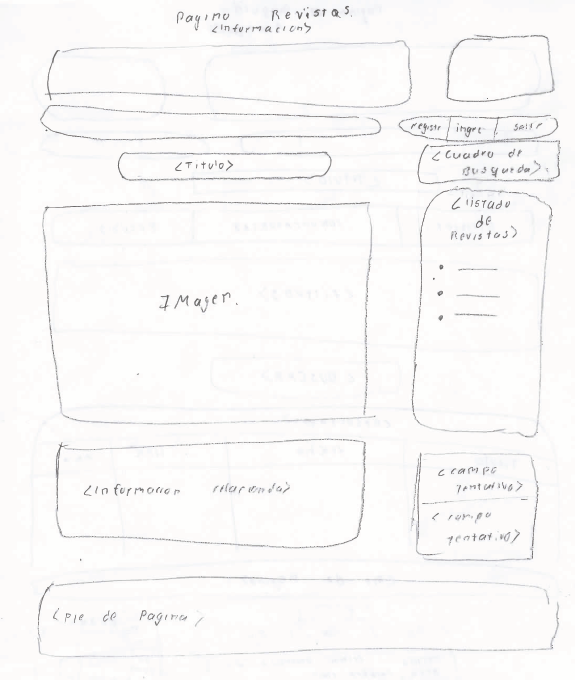 Pagina Revistas.
<Informacion>
registr ingre. salir
<Cuadro de
Busqueda>.
<Titulo>
<listado
de
Revistas>
IMagen.
<Informacion relacionda>
<campo
tentativo>
<campo
tentativo>
<Pie de Pagina>